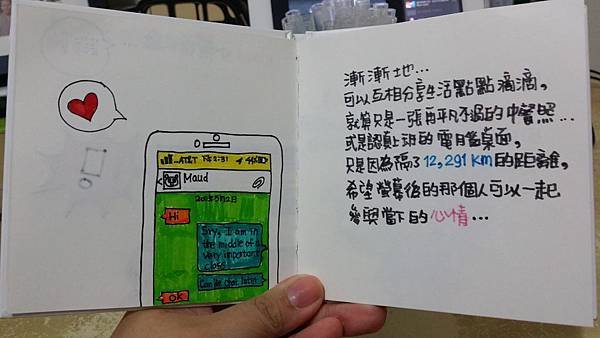 AT&T 下午2:31
Maud
Hi
Sry, I am in
the middle of a
very important
class
Can we chat later
OK
漸漸地...
可以互相分享生活點點滴滴,
就算只是一張再平凡不過的中餐照...
或是認真上班的電腦桌面,
只是因為隔了12,291 km的距離,
希望螢幕後的那個人可以一起
參與當下的心情...